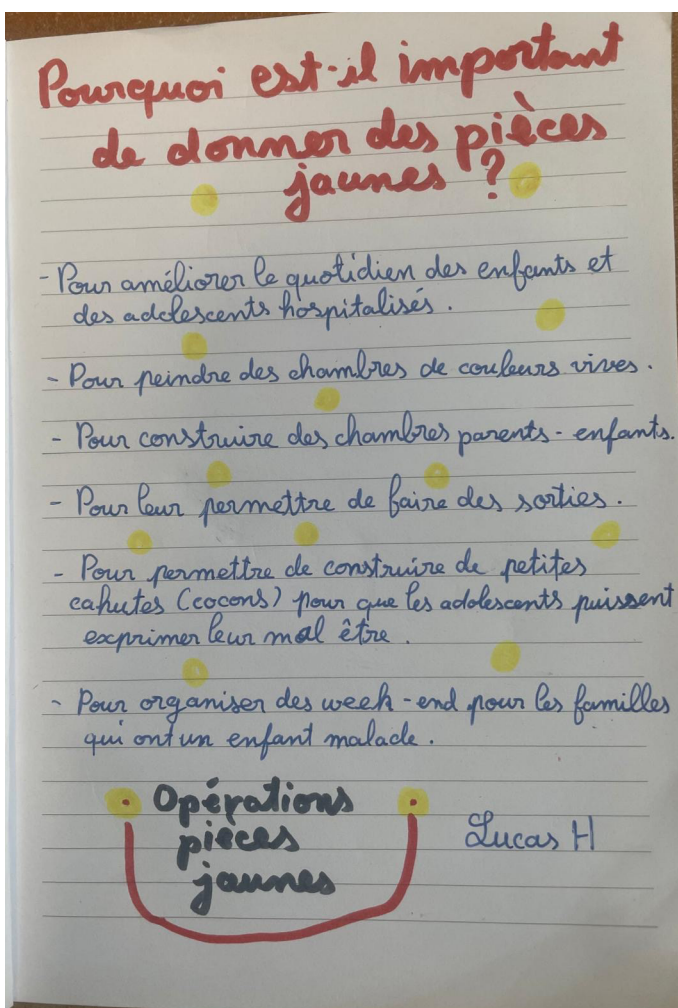 Pourquoi est-il important
de donner des pièces
jaunes ?
- Pour améliorer le quotidien des enfants et
des adolescents hospitalisés.
- Pour peindre des chambres de couleurs vives.
- Pour construire des chambres parents - enfants.
- Pour leur permettre de faire des sorties.
- Pour permettre de construire de petites
cahutes (cocons) pour que les adolescents puissent
exprimer leur mal être.
- Pour organiser des week-end pour les familles
qui ont un enfant malade.
Opérations
pièces
jaunes
Lucas H